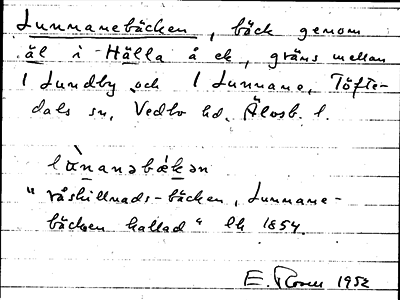 Lunnanebäcken, bäck genom
äl i Hälla å ek, gräns mellan
1 Lundby och 1 Lunnane, Töfte-
dals sn, Vedbo hd, Älvsb. l.
lɑ̀nanəbǽkən
"råskillnads-bäcken, Lunnane-
bäcken kallad" lk 1854.
E. 1952